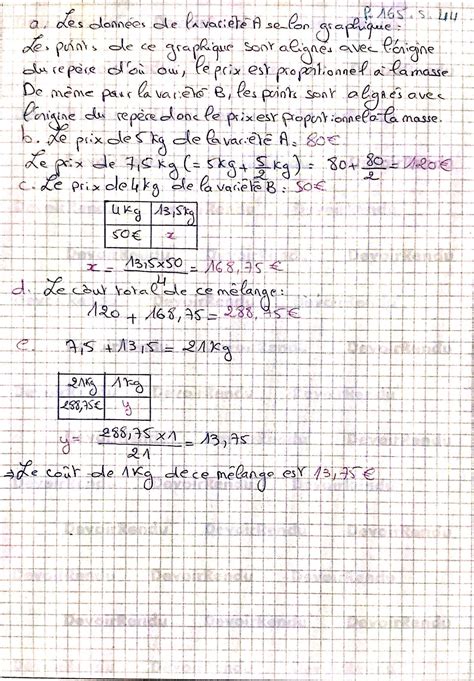 P.165.S.44
a. Les données de la variété A selon graphique:
Les points de ce graphique sont alignés avec l'origine
du repère d'où oui, le prix est proportionnel à la masse
De même pour la variété B, les points sont alignés avec
l'origine du repère donc le prix est proportionnel à la masse.
b. Le prix de 5kg de la variété A = 80€
Le prix de 7,5 kg (= 5kg + 5/2 kg) = 80 + 80/2 = 120€
c. Le prix de 4kg de la variété B = 50€
4kg 13,5kg
50€ x
x = 13,5x50/4 = 168,75€
d. Le coût total de ce mélange:
120 + 168,75 = 288,75€
e. 7,5 + 13,5 = 21kg
21kg 1kg
288,75€ y
y = 288,75 x 1/21 = 13,75
→ Le coût de 1kg de ce mélange est 13,75€
DevoirRendu DevoirRendu
DevoirRendu DevoirRendu DevoirRendu